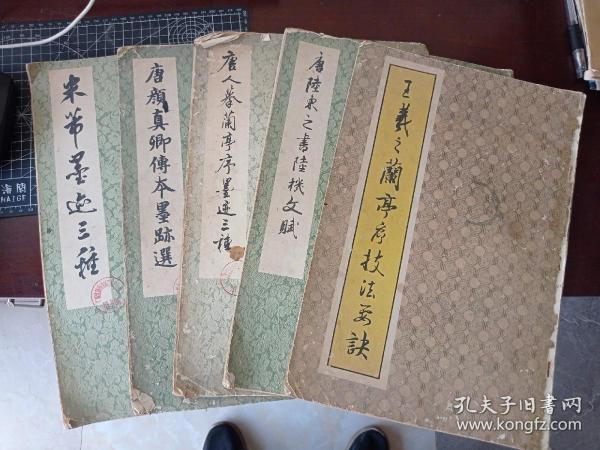 米芾墨迹三種
唐顏真卿傳本墨跡選
唐人摹蘭亭序墨迹三種
唐陸柬之書陸機文賦
王羲之蘭亭序技法要訣
孔夫子旧书网
www.kongfz.com